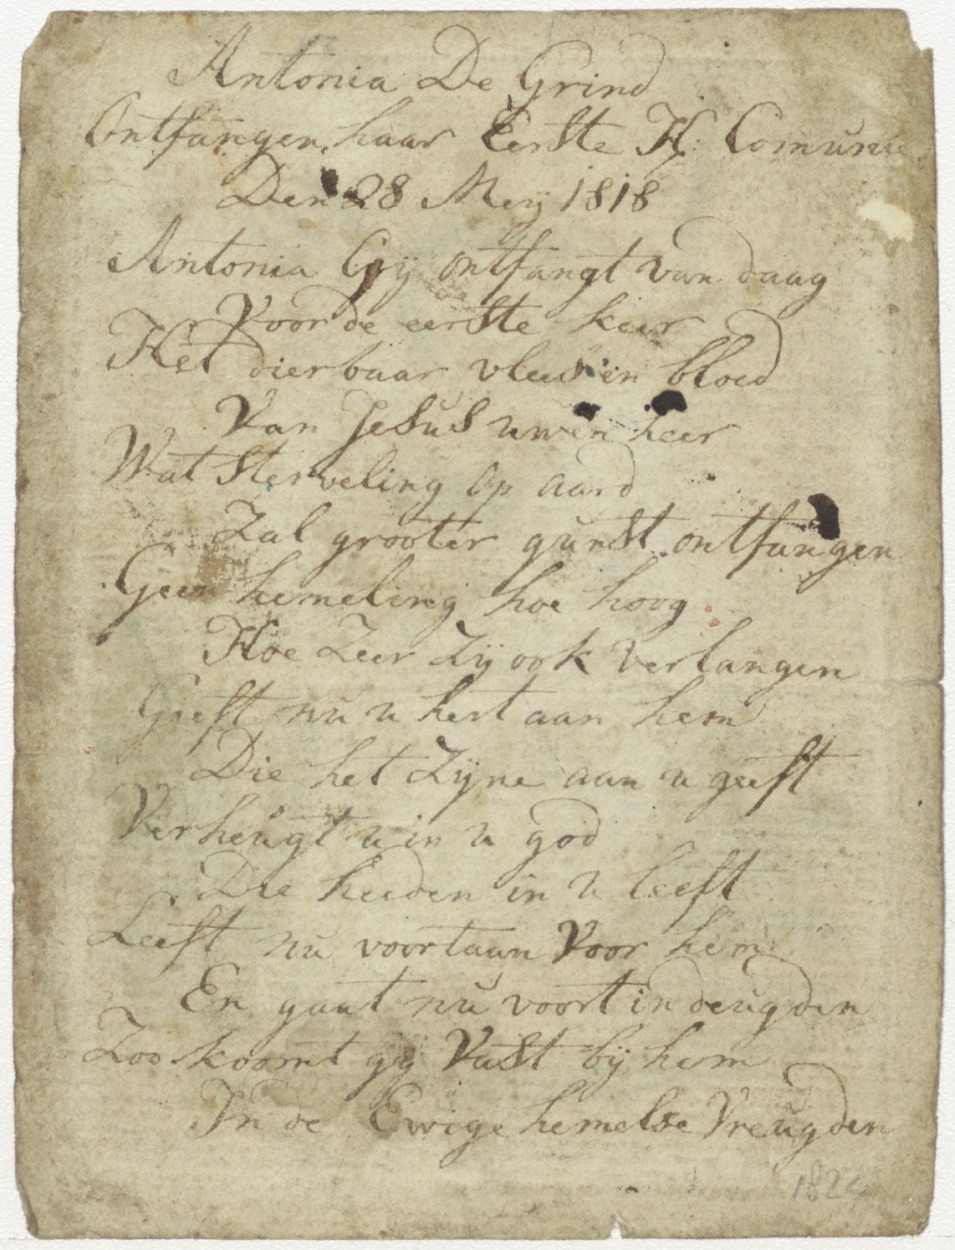 Antonia De Grind
Ontfangen haar Eerste H: Comunie
Den 28 Meij 1818
Antonia Gij ontfangt van daag
Voor de eerste keer
Het dierbaar vlees en bloed
Van Jesus uwen heer
Wat sterveling op aard
Zal grooter gunst ontfangen
Geen hemeling hoe hoog
Hoe Zeer Zij ook verlangen
Geeft nu u hert aan hem
Die het Zijne aan u geeft
Verheugt u in u god
Die heeden in u leeft
Leeft nu voortaan Voor hem
En gaat nu voort in deugden
Zoo koomt gij Vast bij hem
In de Ewige hemelse Vreugden
1824